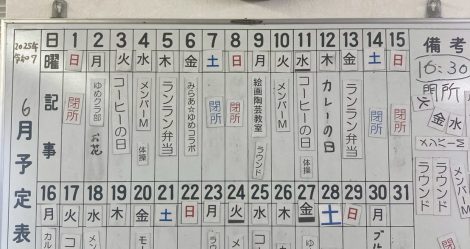 2025年
令和7
6月予定表
日 1 2 3 4 5 6 7 8 9 10 11 12 13 14 15 備考
曜 日 月 火 水 木 金 土 日 月 火 水 木 金 土 日
記事
閉所
ゆめクラ部
コーヒーの日
メンバーM
体操
ランラン弁当
みらあ☆ゆめコラボ
閉所
閉所
絵画陶芸教室
ラウンド
メンバーM
コーヒーの日
体操
カレーの日
ランラン弁当
閉所
閉所
16:30
閉所
金 水
メンバーM
ラウンド
ラウンド
16 17 18 19 20 21 22 23 24 25 26 27 28 29 30 31
月 火 水 木 金 土 日 月 火 水 木 金 土 日 月